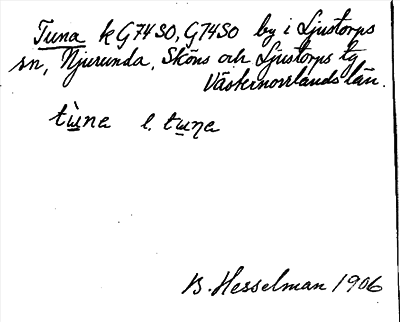 Tuna k G74SO, G74SO by i Ljustorps
sn, Njurunda, Sköns och Ljustorps tg
Västernorrlands län.
tùna l. tuna
B. Hesselman 1906